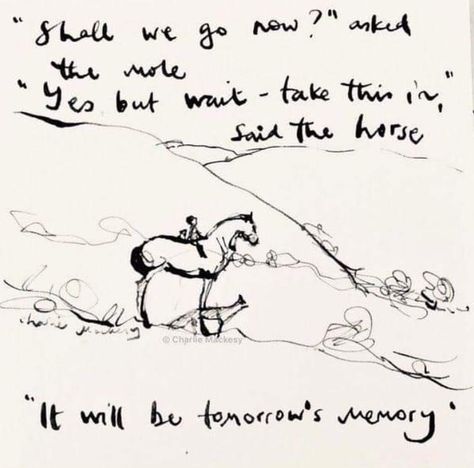 "Shall we go now?" asked
the mole
"Yes but wait - take this in,"
said the horse
Charlie Mackesy
© Charlie Mackesy
"It will be tomorrow's memory"